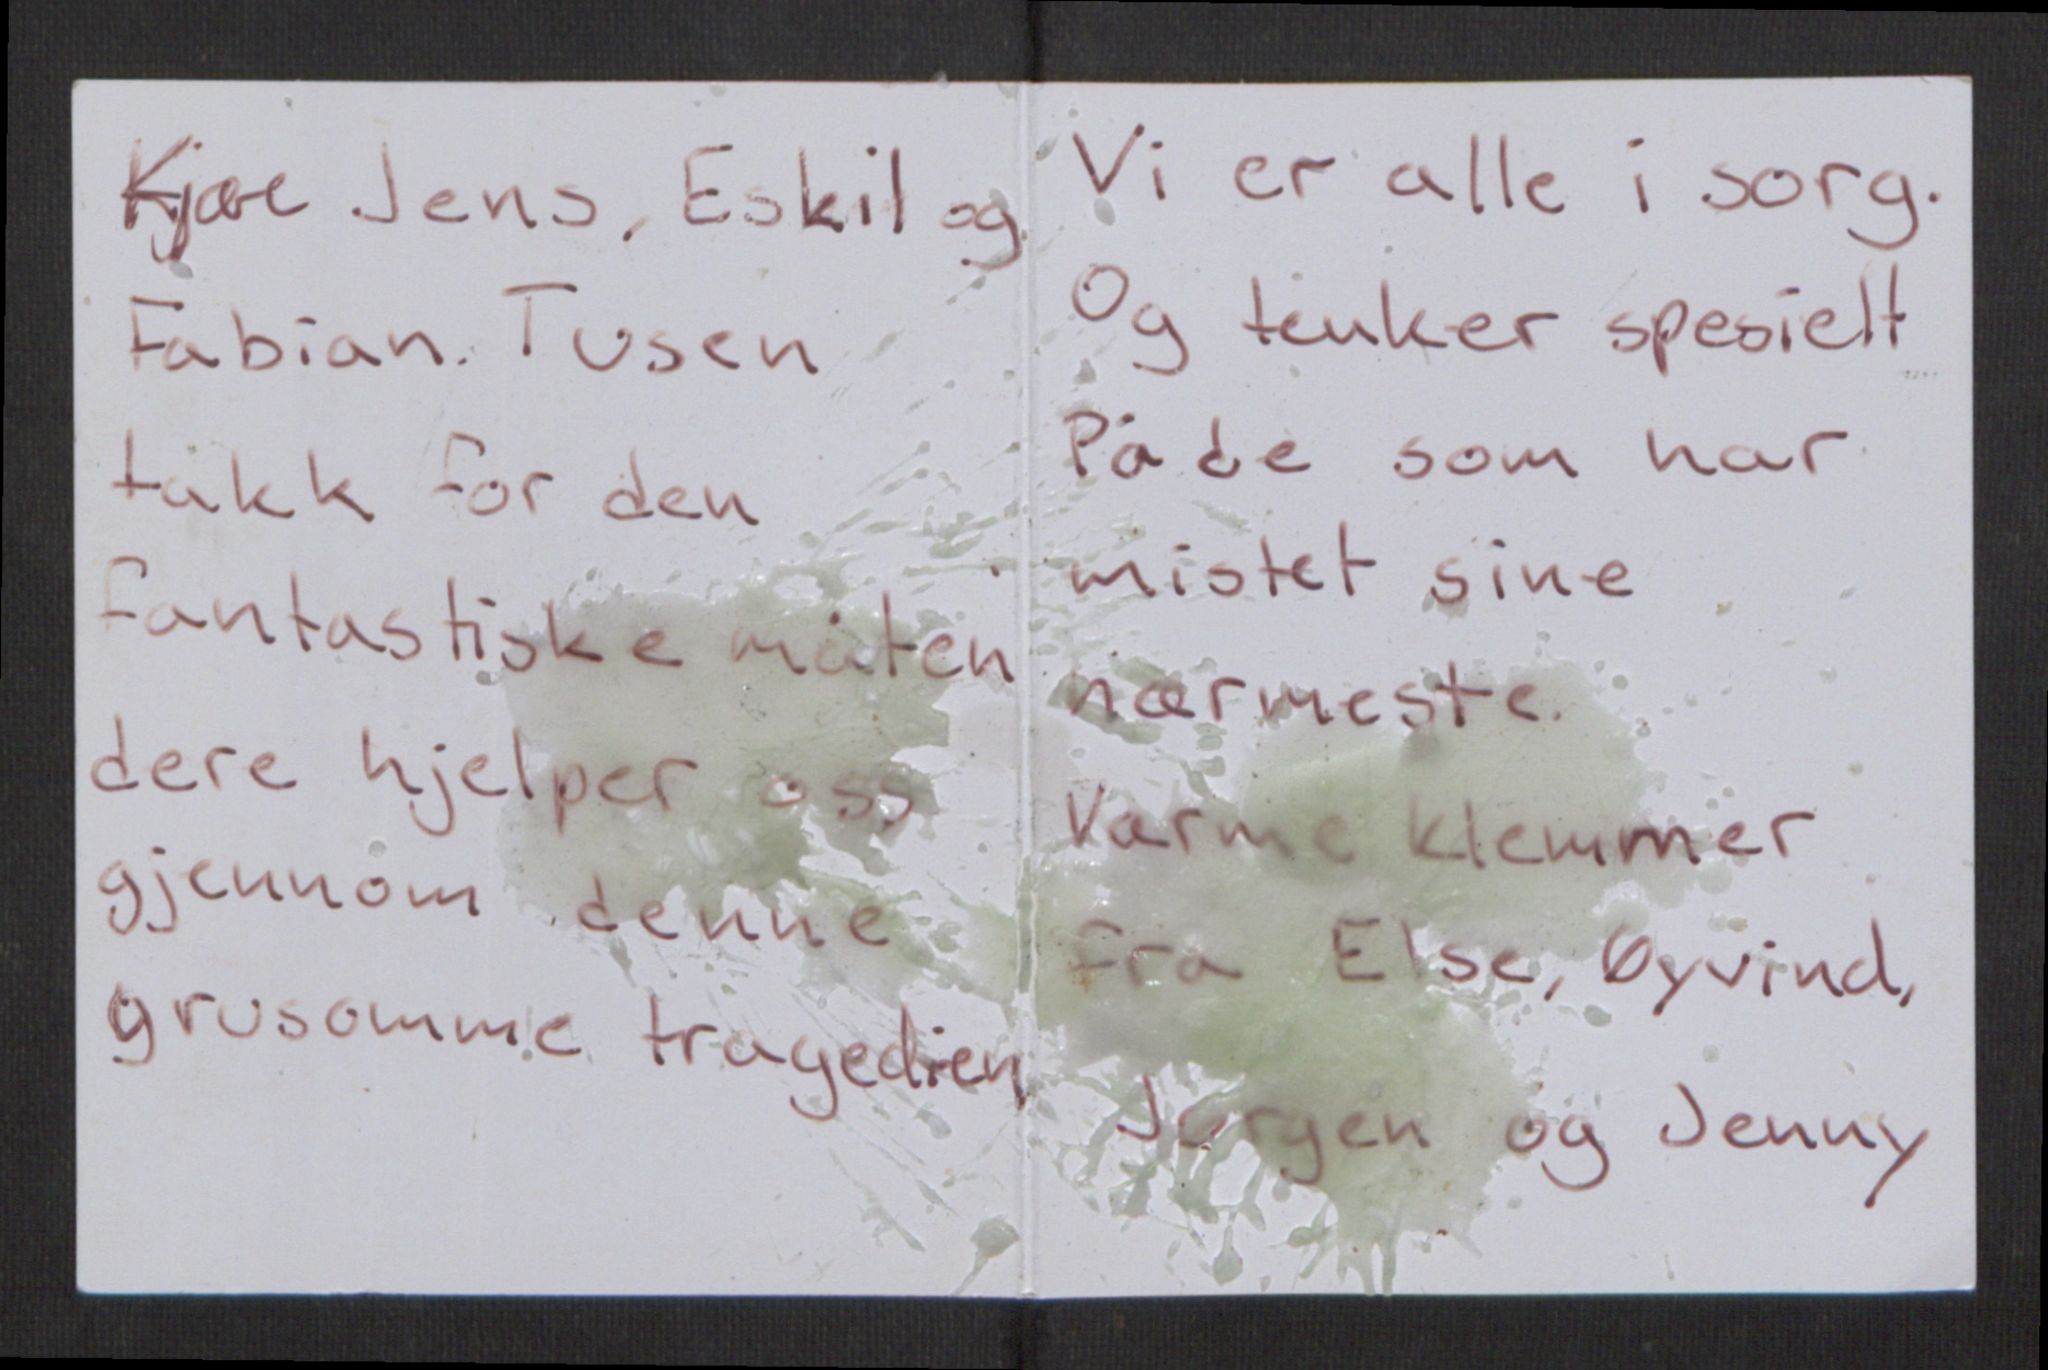 Kjære Jens, Eskil og
Fabian. Tusen
takk for den
fantastiske måten
dere hjelper oss
gjennom denne
grusomme tragedien
Vi er alle i sorg.
Og tenker spesielt
På de som har
mistet sine
nærmeste.
Varme klemmer
fra Else, Øyvind,
Jørgen og Jenny